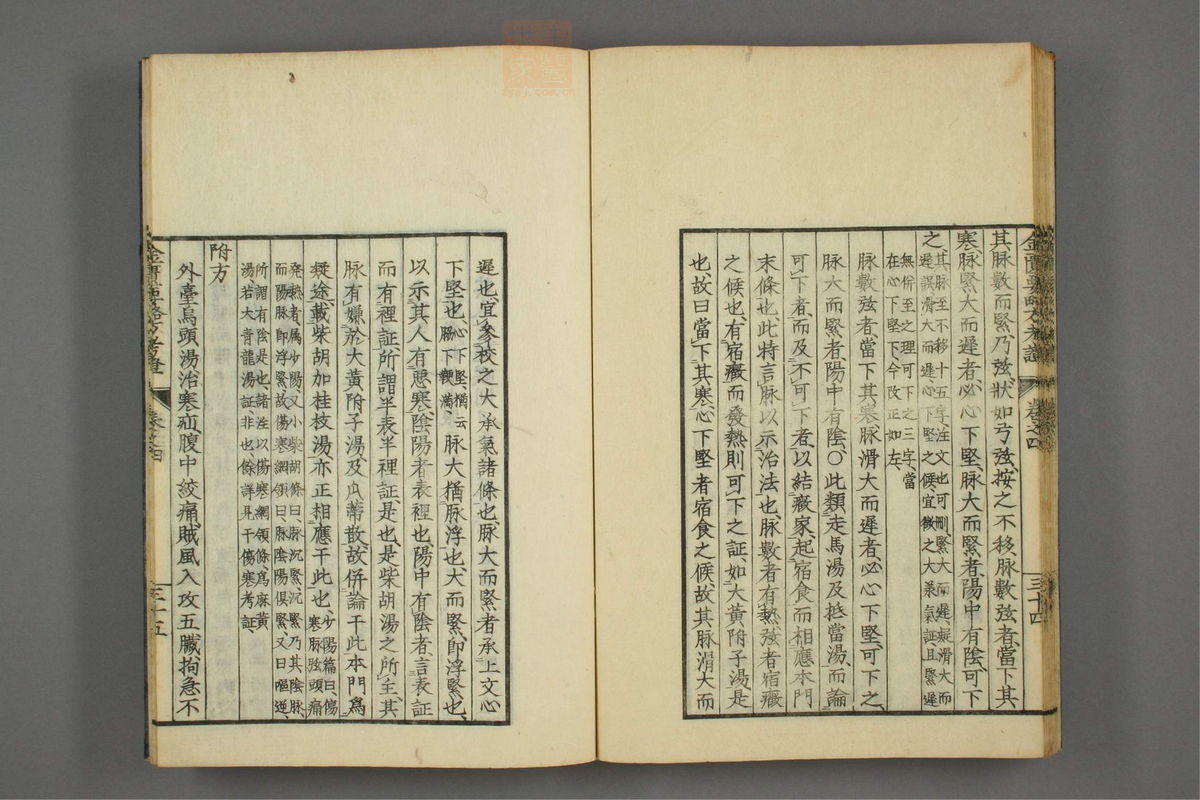 其脉數而緊、乃弦、狀如弓弦、按之不移、脉數弦者、當下其
寒、脉緊大而遲者、必心下堅、脉大而緊者、陽中有陰、可下
之、
其脉至不移十五字、注文也可刪緊大而遲、疑滑大而
遲誤、滑大而遲、心下堅之候、宜徵之大承氣証、且緊遲
無併至之理、可下之三字、當
在心下堅下、今改正如左、
脉數弦者、當下其寒、脉滑大而遲者、必心下堅、可下之、
脉大而緊者、陽中有陰、○此類走馬湯及抵當湯、而論
可下者、而及不可下者、以結癥家、起宿食而相應本門
末條也、此特言脉以示治法也、脉數者有熱、弦者宿癥
之候也、有宿癥而發熱、則可下之証、如大黃附子湯是
也、故曰當下其寒、心下堅者、宿食之候、故其脉滑大而
三十四
遲也、宜參挍之大承氣諸條也、脉大而緊者、承上文心
下堅也、
心下堅、猶云
腸下鞕滿、
脉大猶脉浮也、大而緊、即浮緊也、
以示其人有惡寒、陰陽者表裡也、陽中有陰者、言表証
而有裡証、所謂半表半裡証是也、是柴胡湯之所主、其
脉有嫌於大黃附子湯、及瓜蒂散、故併論于此、本門爲
疑途、載柴胡加桂枝湯、亦正相應于此也、
少陽篇曰、傷
寒脉弦頭痛
發熱者、屬少陽、又小柴胡條曰、脉沉緊、沉緊乃其陰脉、
而陽脉即浮緊、故傷寒綱領曰、脉陰陽俱緊、又曰嘔逆、
所謂有陰是也、諸注以傷寒綱領條、爲麻黃
湯若大青龍湯証、非也、餘詳見于傷寒考証、
附方
外臺烏頭湯、治寒疝、腹中絞痛、賊風入攻五臟、拘急不
三十五